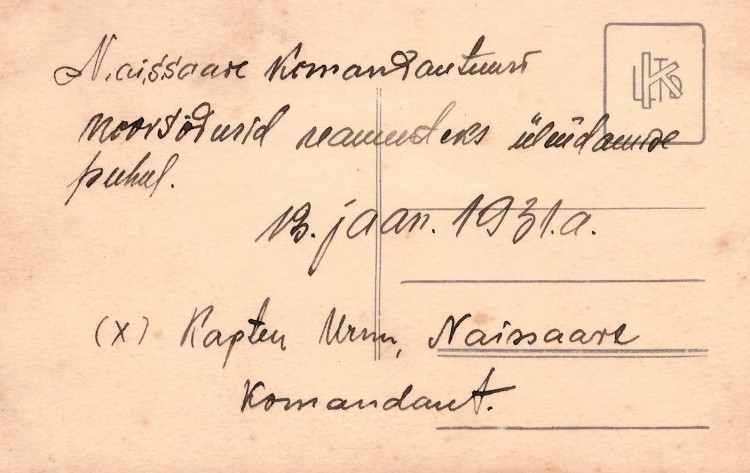 Naissaare Komandantuuri
noorsõdurid reameesteks ülendamise
puhul.
13. jaan. 1931.a.
(X) Kapten Urm, Naissaare
Komandant.